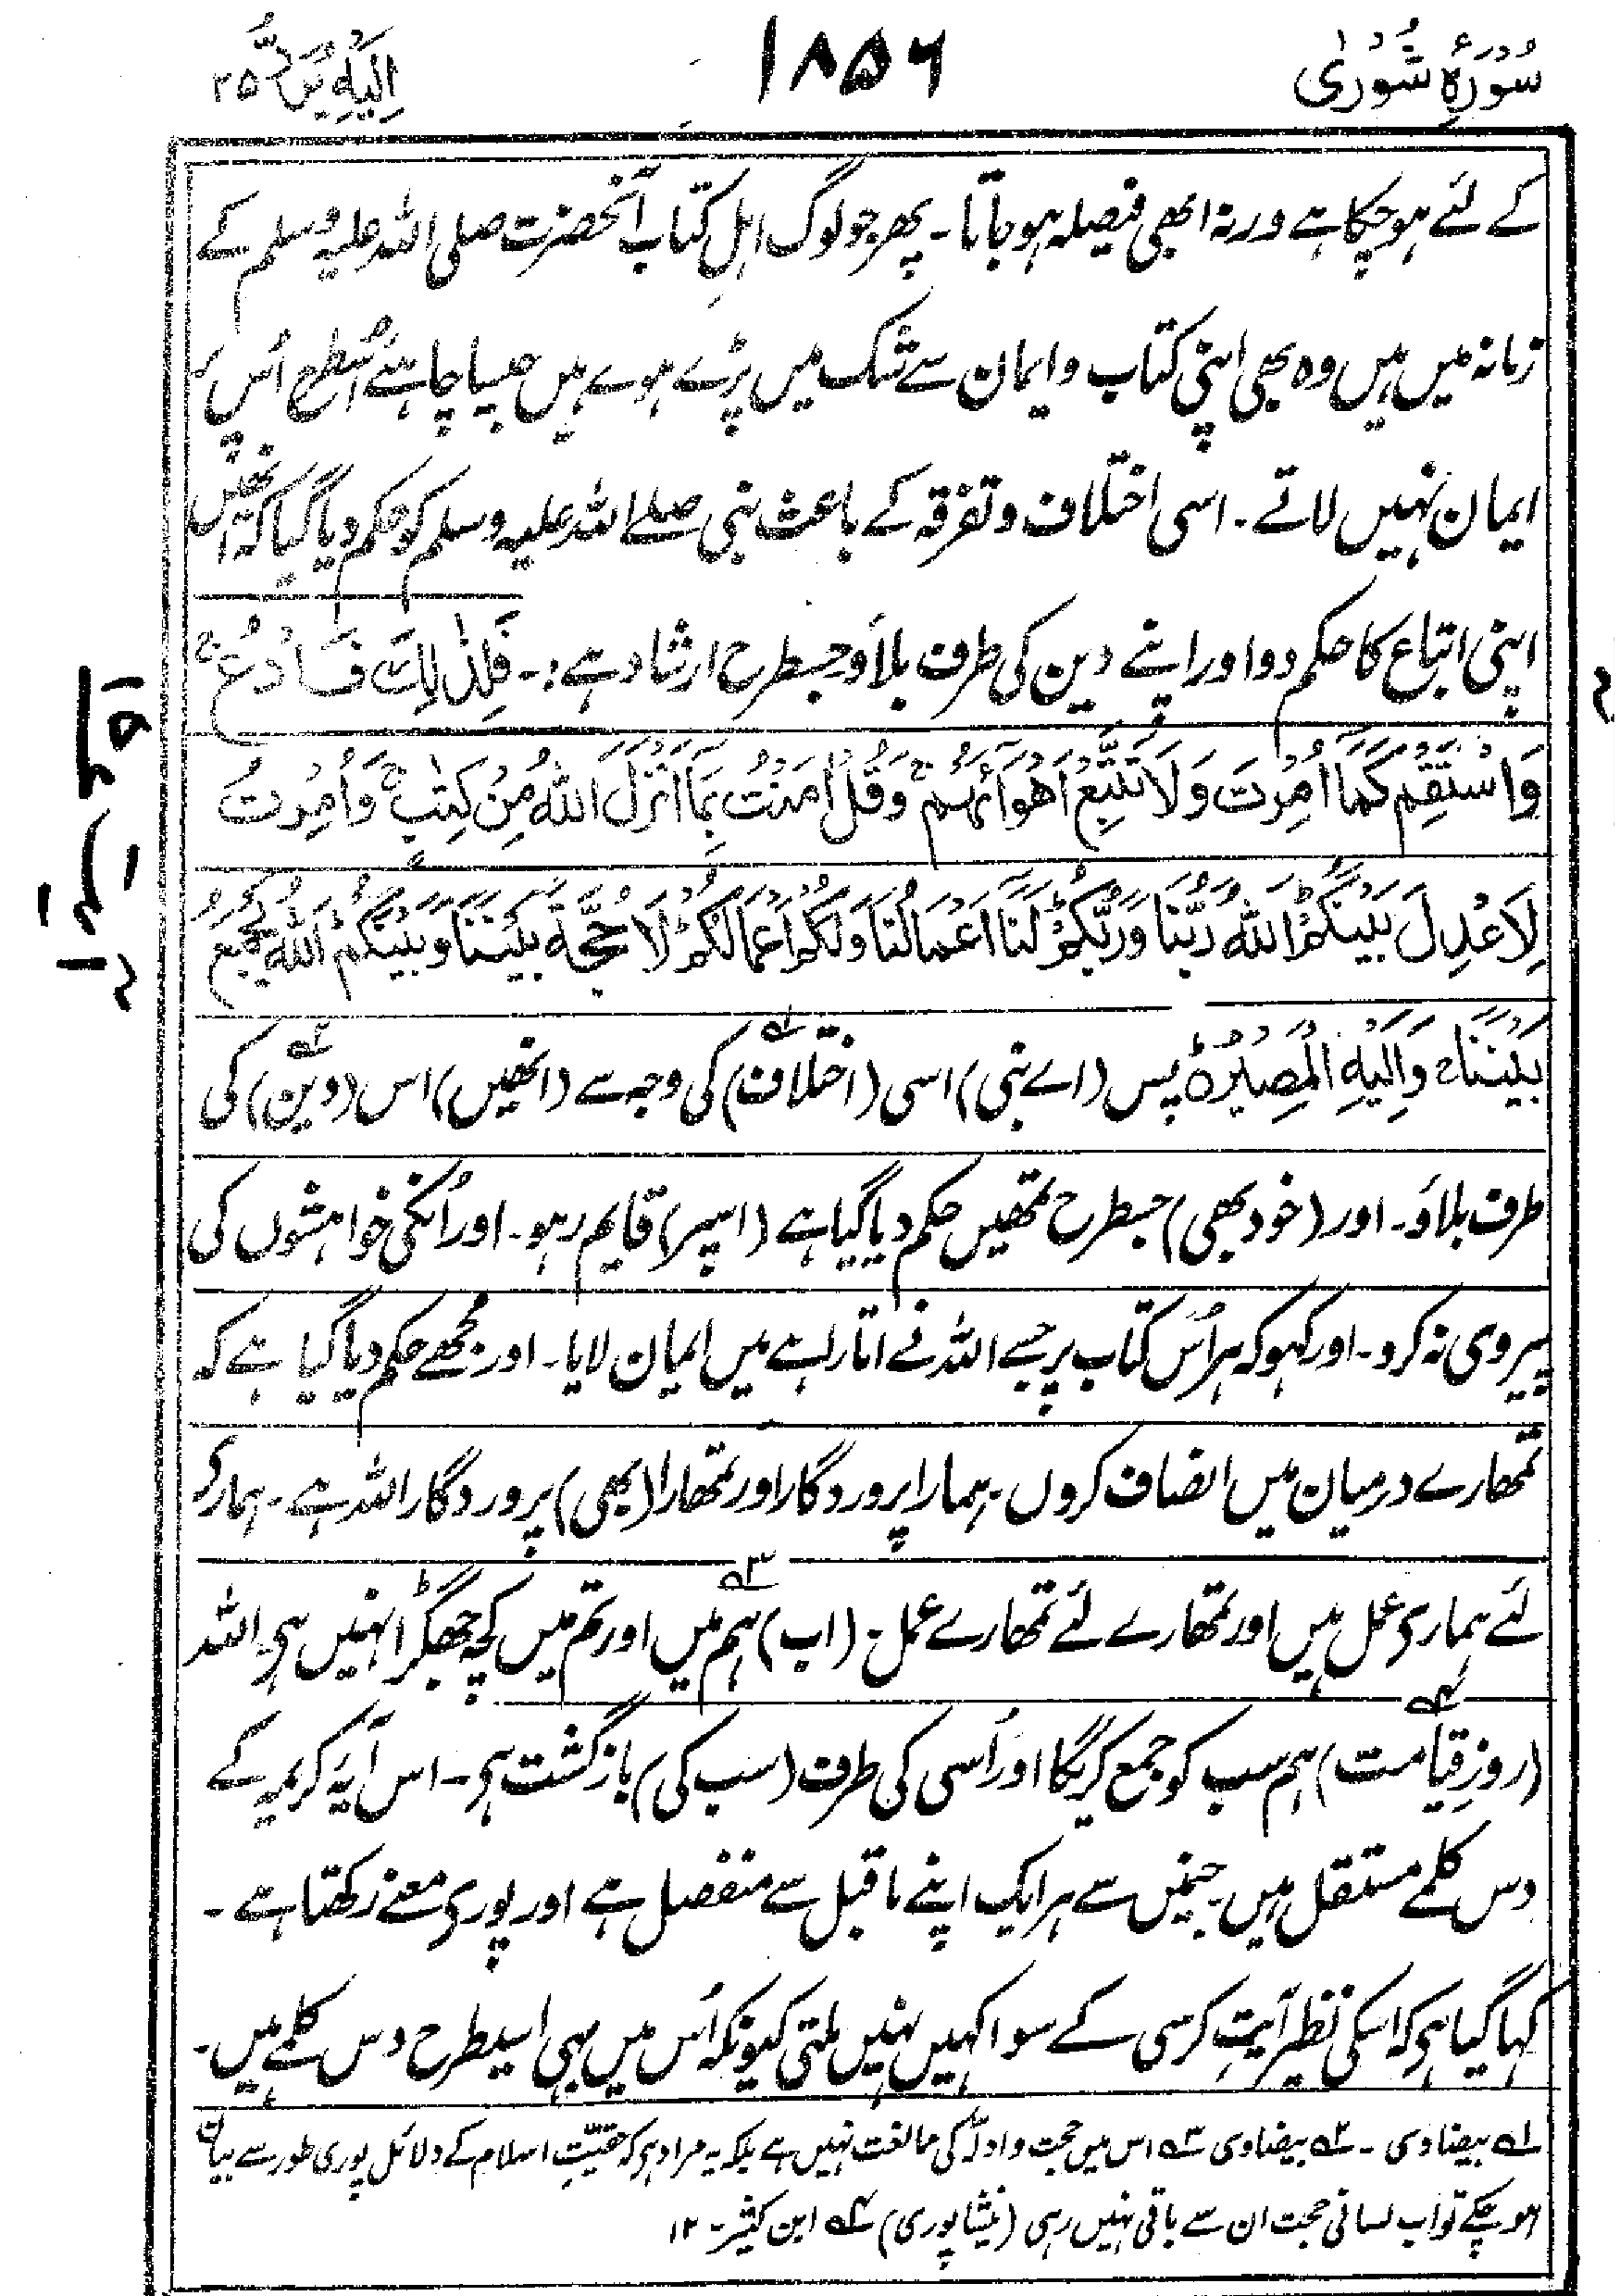 سُورَۂِ شُورٰی ۱۸۵۶ اِلَیْہِ یُرَدُّ ۲۵
کے لئے ہو چکا ہے ورنہ ابھی فیصلہ ہو جاتا۔ پھر جو لوگ اہلِ کتاب آنحضرت صلی اللہ علیہ وسلم کے
زمانہ میں ہیں وہ بھی اپنی کتاب و ایمان سے شک میں پڑے ہوے ہیں جیسا چاہئے اُسطرح اُس پر
ایمان نہیں لاتے۔ اسی اختلاف و تفرقہ کے باعث نبی صلے اللہ علیہ وسلم کو حکم دیا گیا کہ انھیں
اپنی اتباع کا حکم دو اور اپنے دین کی طرف بلاؤ جسطرح ارشاد ہے:۔ فَلِذٰلِكَ فَادْعُ ۚ
وَاسْتَقِمْ كَمَآ اُمِرْتَ وَلَا تَتَّبِعْ اَهْوَآءَهُمْ ۚ وَقُلْ اٰمَنْتُ بِمَآ اَنْزَلَ اللّٰهُ مِنْ كِتٰبٍ ۚ وَاُمِرْتُ
لِاَعْدِلَ بَيْنَكُمْ ؕ اَللّٰهُ رَبُّنَا وَرَبُّكُمْ ؕ لَنَآ اَعْمَالُنَا وَلَكُمْ اَعْمَالُكُمْ ؕ لَا حُجَّةَ بَيْنَنَا وَبَيْنَكُمْ ؕ اَللّٰهُ يَجْمَعُ
بَيْنَنَا ۚ وَاِلَيْهِ الْمَصِيْرُ ؕ پس (اے نبی) اسی (اختلاف) ۱؎ کی وجہ سے (انھیں) اس (دین) ۲؎ کی
طرف بلاؤ۔ اور (خود بھی) جسطرح تمھیں حکم دیا گیا ہے (اسپر) قایم رہو۔ اور اُنکی خواہشوں کی
پیروی نہ کرو۔ اور کہو کہ ہر اُس کتاب پر جسے اللہ نے اتارا ہے میں ایمان لایا۔ اور مجھے حکم دیا گیا ہے کہ
تمھارے درمیان میں انصاف کروں۔ ہمارا پروردگار اور تمھارا (بھی) پروردگار اللہ ہے۔ ہماری
لئے ہماری عمل ہیں اور تمھارے لئے تمھارے عمل۔ (اب) ۳؎ ہم میں اور تم میں کچھ جھگڑا نہیں ہی۔ اللہ
(روزِ قیامت) ۴؎ ہم سب کو جمع کریگا اور اُسی کی طرف (سب کی) بازگشت ہی۔ اس آیۂ کریمہ کے
دس کلمے مستقل ہیں۔ جنمیں سے ہر ایک اپنے ماقبل سے منفصل ہے اور پوری معنے رکھتا ہے۔
کہا گیا ہی کہ اسکی نظیر آیتِ کرسی کے سوا کہیں نہیں ملتی کیونکہ اُس میں بہی اسیطرح دس کلمے ہیں۔
۱؎ بیضاوی۔ ۲؎ بیضاوی ۳؎ اس میں حجت و ادلّہ کی مالغت نہیں ہے بلکہ یہ مراد ہی کہ حقیّتِ اسلام کے دلائل پوری طور سے بیان
ہو چکے تو اب لسانی حجت ان سے باقی نہیں رہی (نیشاپوری) ۴؎ ابن کثیر۔ ۱۲